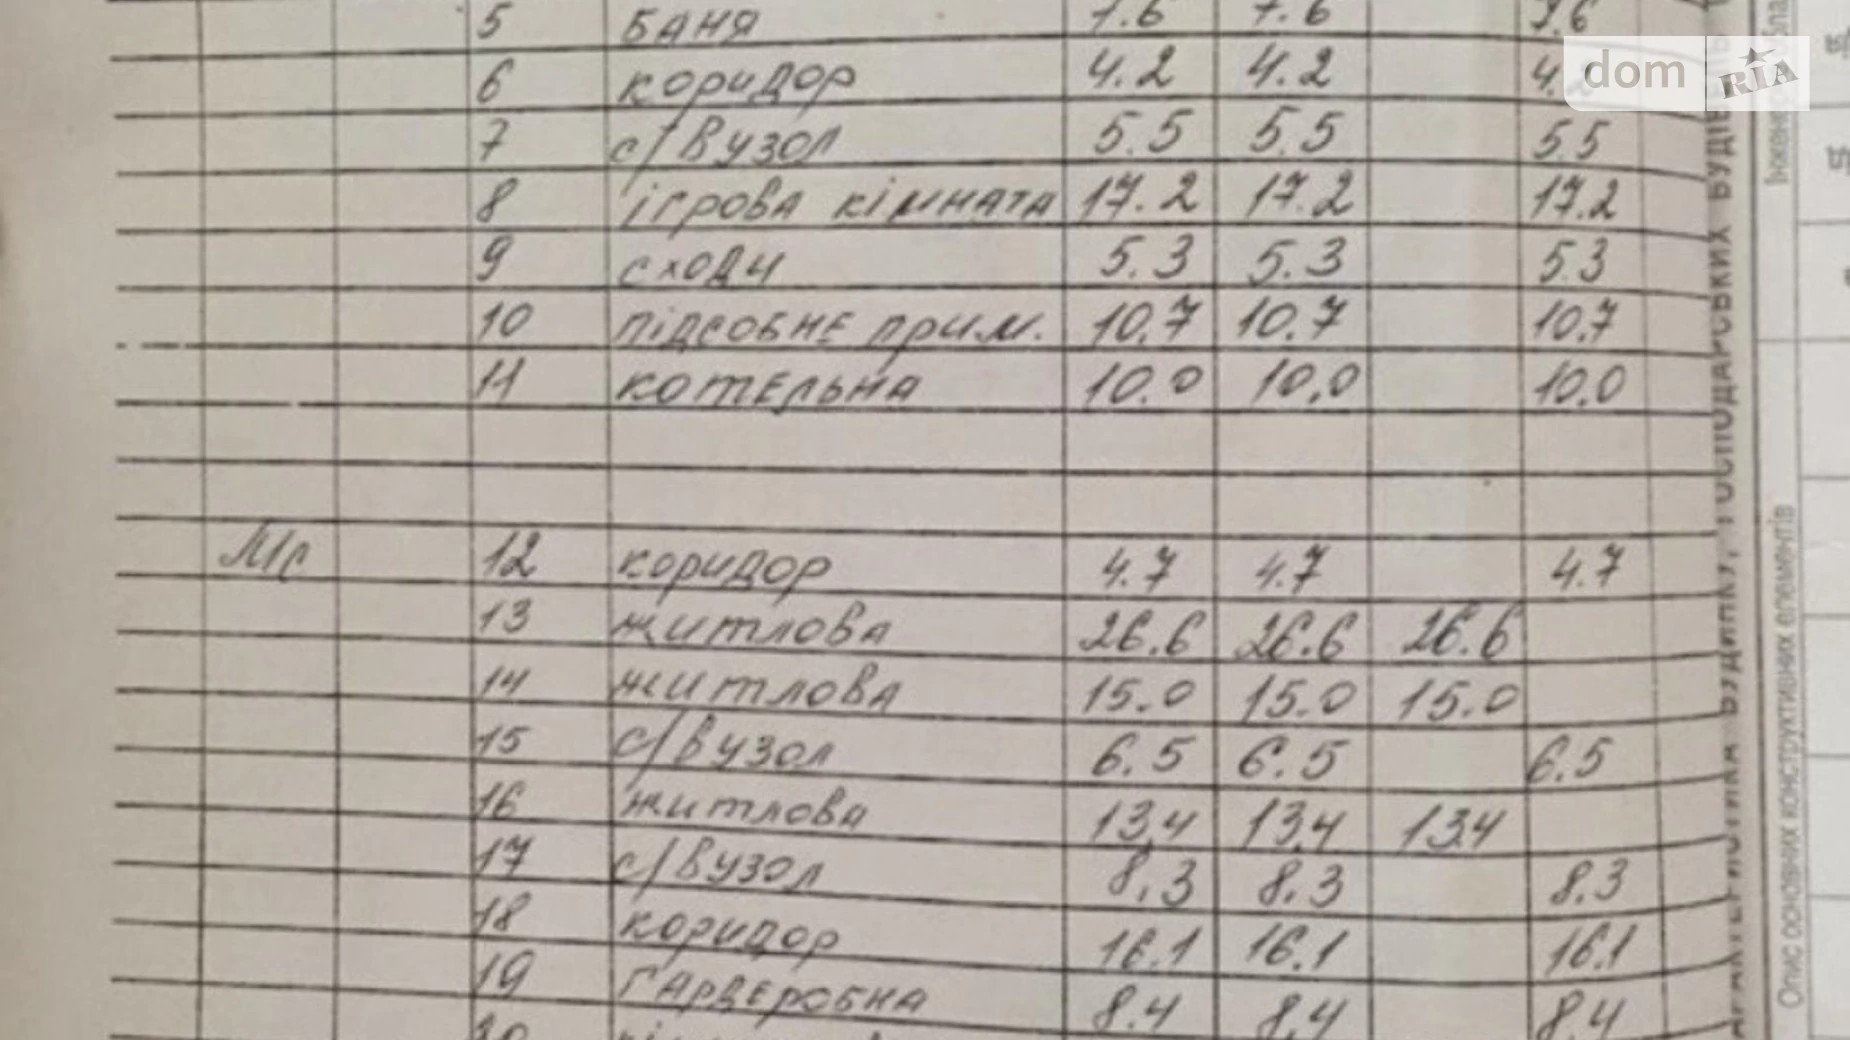 5 БАНЯ 7.6 7.6 7.6
6 коридор 4.2 4.2
dom RIA
7 с/вузол 5.5 5.5 5.5
8 ігрова кімната 17.2 17.2 17.2
9 сходи 5.3 5.3 5.3
10 підсобне прим. 10.7 10.7 10.7
11 котельна 10.0 10.0 10.0
12 коридор 4.7 4.7 4.7
13 житлова 26.6 26.6 26.6
14 житлова 15.0 15.0 15.0
15 с/вузол 6.5 6.5 6.5
16 житлова 13,4 13,4 13,4
17 с/вузол 8.3 8.3 8.3
18 коридор 16.1 16.1 16.1
19 гардеробна 8.4 8.4 8.4
ГОСПОДАРСЬКИХ
Опис основних конструктивних елементів